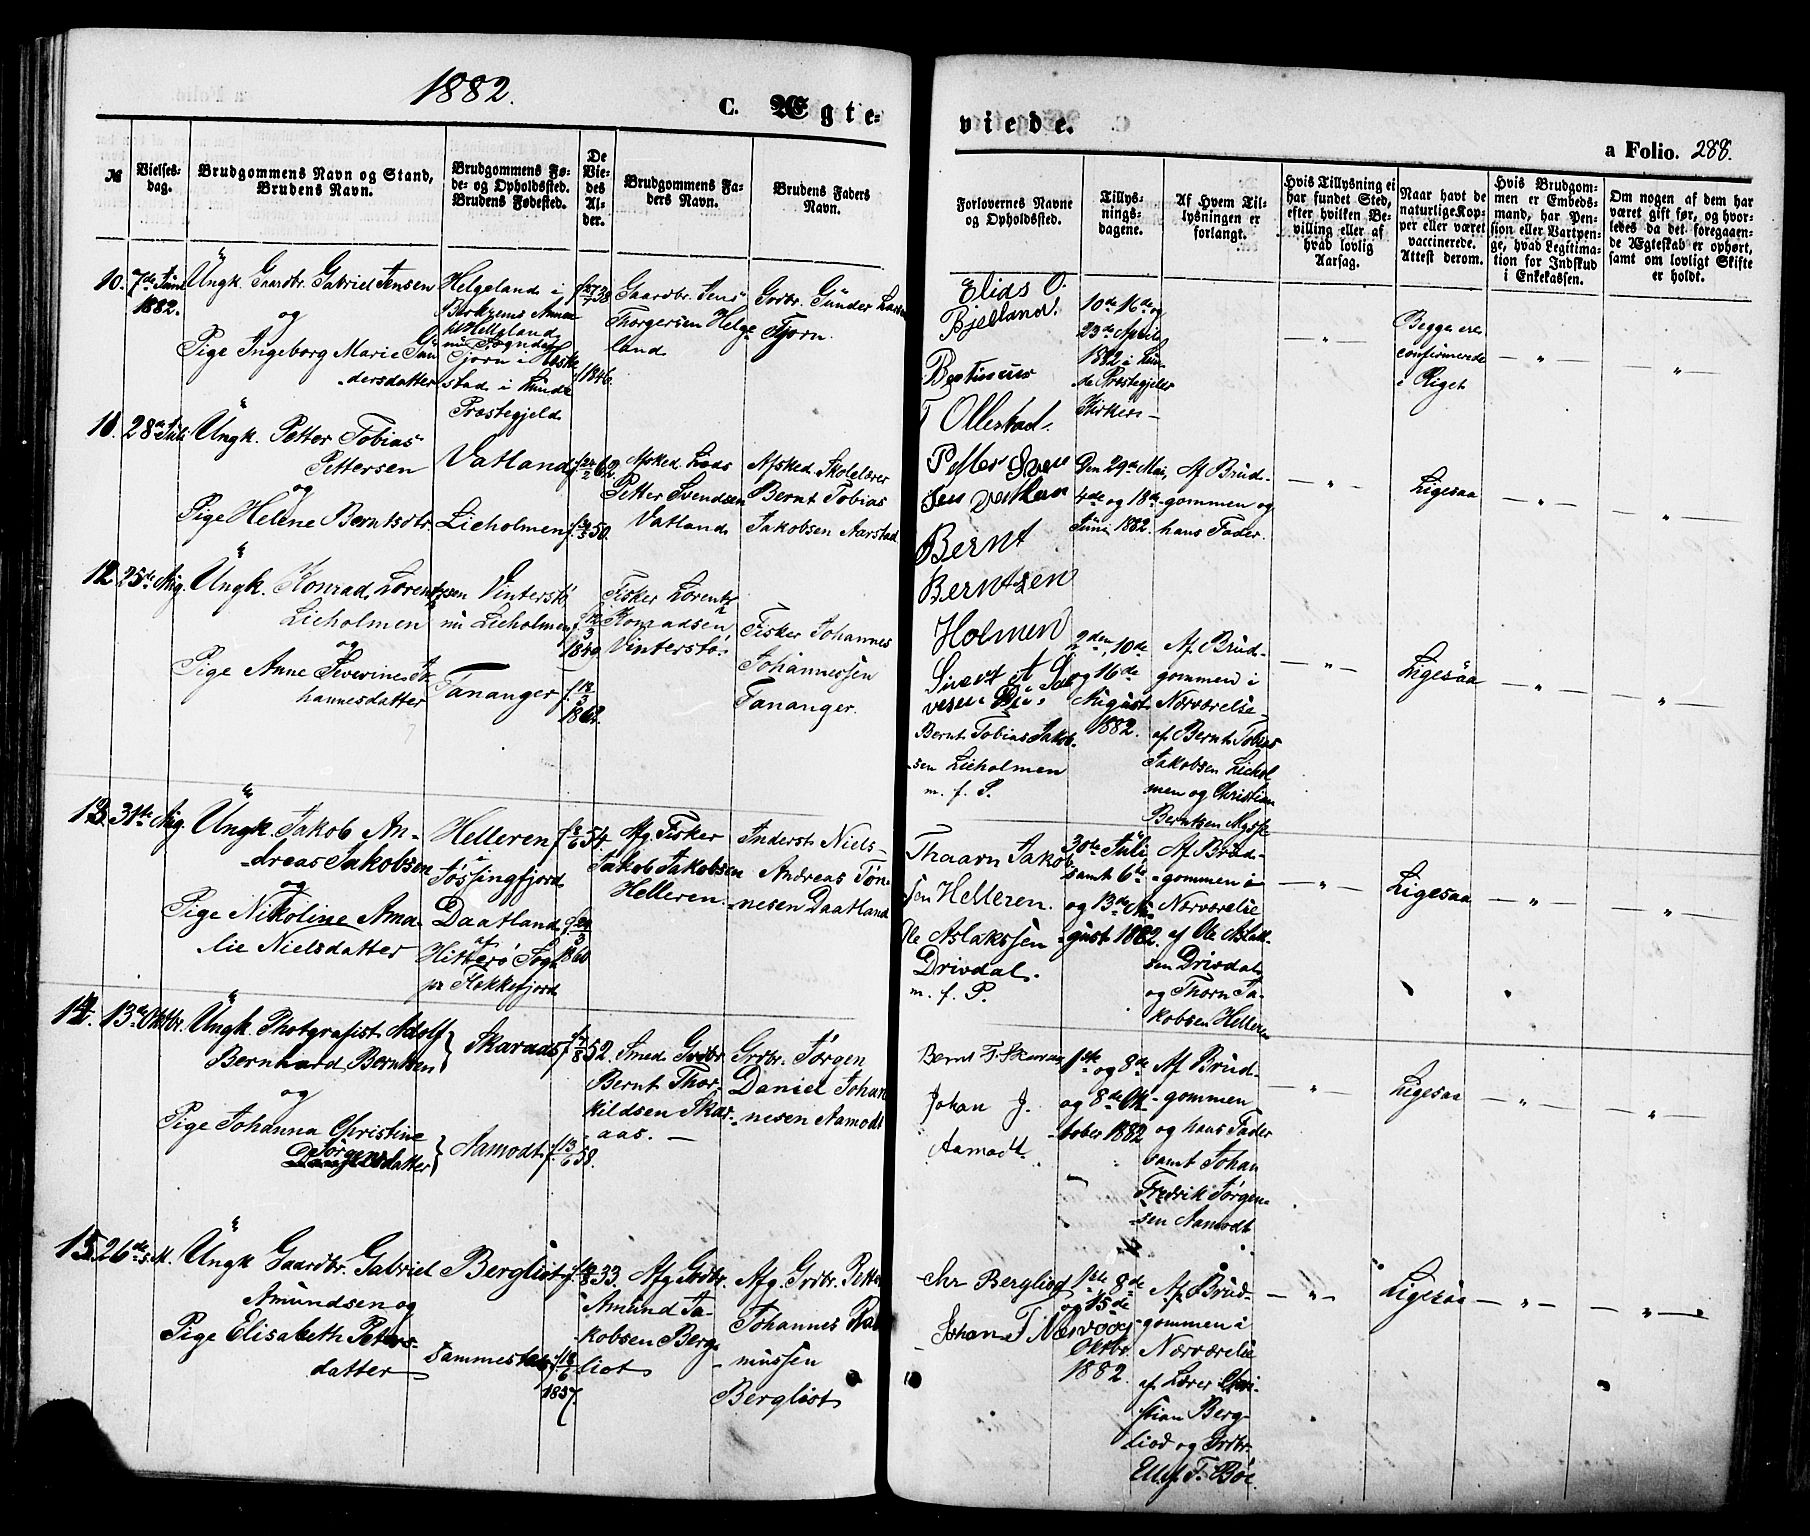 1882.
C. Ægte-
viede.
a Folio. 288.
№
Vielses-
dag.
Brudgommens Navn og Stand,
Brudens Navn.
Brudgommens Fø-
de- og Opholdsted.
Brudens Fødested.
De
Vie-
des
Al-
der.
Brudgommens Fa-
ders Navn.
Brudens Faders
Navn.
Forlovernes Navne
og Opholdssted.
Tillys-
nings-
dagene.
Af Hvem Til-
lysningen er
forlangt.
Hvis Tillysning ei
har fundet Sted,
efter hvilken Be-
villing eller af
hvad lovlig
Aarsag.
Naar havt de
naturlige Kop-
per eller været
vaccinerede.
Attest derom.
Hvis Brudgom-
men er Embeds-
mand, har Pen-
sion eller Vartpen-
ge, hvad Legitima-
tion for Indskud
i Enkekassen.
Om nogen af dem har
været gift før, og hvor-
ledes da det foregaaen-
de Ægteskab er ophørt,
samt om lovligt Skifte
er holdt.
10.
7de Juni
1882.
Ungk. Gaardbr. Gabriel Jensen
og
Pige Ingeborg Marie Gun
dersdatter
Helgeland i
Helleland
Tjorn i Hæske
stad i Lunde
Præstegjeld
1846.
Gaardbr. Jens
Thorgersen Helge
land
Grdbr. Gunder
Tjorn.
Elias O.
Bjelland.
Bertinius
T Ollestad.
10de 16de og
23de April
1882 i Lun
de Præstegjelds
Kirker
Begge ere
confirmerede
i Riget
11.
28de Juli
Ungk. Petter Tobias
Pettersen
og
Pige Helene Berntsdtr.
Vatland
Lieholmen
62
50.
Afsked. Lods
Petter Svendsen
Vatland
Afsked. Skolelærer
Bernt Tobias
Jakobsen Aarstad
Petter Sven
sen Vatland
Bernt
Berntsen
Holmen
Den 29de Mai,
4de og 18de
Juni 1882.
Af Brud-
gommen og
hans Fader.
Ligesaa
12.
25de Aug.
Ungk. Konrad Lorent
sen Vinterstø
Lieholmen
nu Lieholmen
og
Pige Anne Severine Jo
hannesdatter
Tananger
12/3
1862.
Fisker Lorents
Konradsen
Vinterstø.
Fisker Johannes
Johannessen
Tananger.
Bernt Tobias Jakob-
sen Lieholmen
m. f. P.
2den, 10de
og 16de
August
1882.
Af Brud-
gommen i
Nærværelse
af Bernt Tobias
Jakobsen Liehol
men og Christian
Berntsen
Ligesaa
13.
31te Aug.
Ungk. Jakob An-
dreas Jakobsen
og
Pige Nikoline Ama-
lie Nielsdatter
Helleren
i
Jøssingfjord
Daatland
af
Hitterø Sogn
pr Flekkefjord
54.
1860
Afg. Fisker
Jakob Jakobsen
Helleren.
Inderst. Niels
Andreas Tøn-
nesen Daatland
Thaarn Jakob
sen Helleren.
Ole Aslakssen
Drivdal.
m. f. P.
30te Juli
samt 6te
og 13de Au
gust 1882.
Af Brud-
gommen i
Nærværelse
af Ole Aslak-
sen Drivdal
og Thorn Ja-
kobsen Helleren
Ligesaa
14.
13de Oktbr.
Ungk. Photgrafist Adolf
Bernhard Berntsen
og
Pige Johanna Christine
Jørgens
datter
Skaraas
Aamodt.
52.
13/6 58.
Smed Grdbr.
Bernt Thor-
kildsen Skar-
aas.
Grdbr. Jørgen
Daniel Johan
nesen Aamodt
Bernt T. Skaraas
Johan J.
Aamodt.
1ste og 8de
og 8de Ok-
tober 1882
Af Brud-
gommen
og hans Fader
samt Johan
Fredrik Jørgen-
sen Aamodt
Ligesaa
15.
26de s. M.
Ungk Gaardbr. Gabriel
Amundsen og
Pige Elisabeth Peters-
datter
Bergliot
sammesteds
33.
1857.
Afg Grdbr.
Amund Ja-
kobsen Berg-
liot
Afg. Grdbr. Petter
Johannes Ras
mussen
Bergliot
Chr Bergliod
1ste 8de
og 15de
Oktbr.
1882.
Af Brud-
gommen i
Nærværelse
af Lærer Chri-
stian Berg-
liod og Grdbr.
Ligesaa